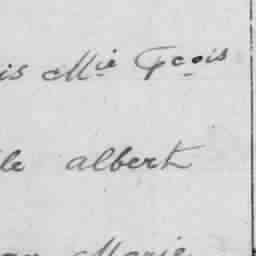 is Mie Fcois
le albert
Marie